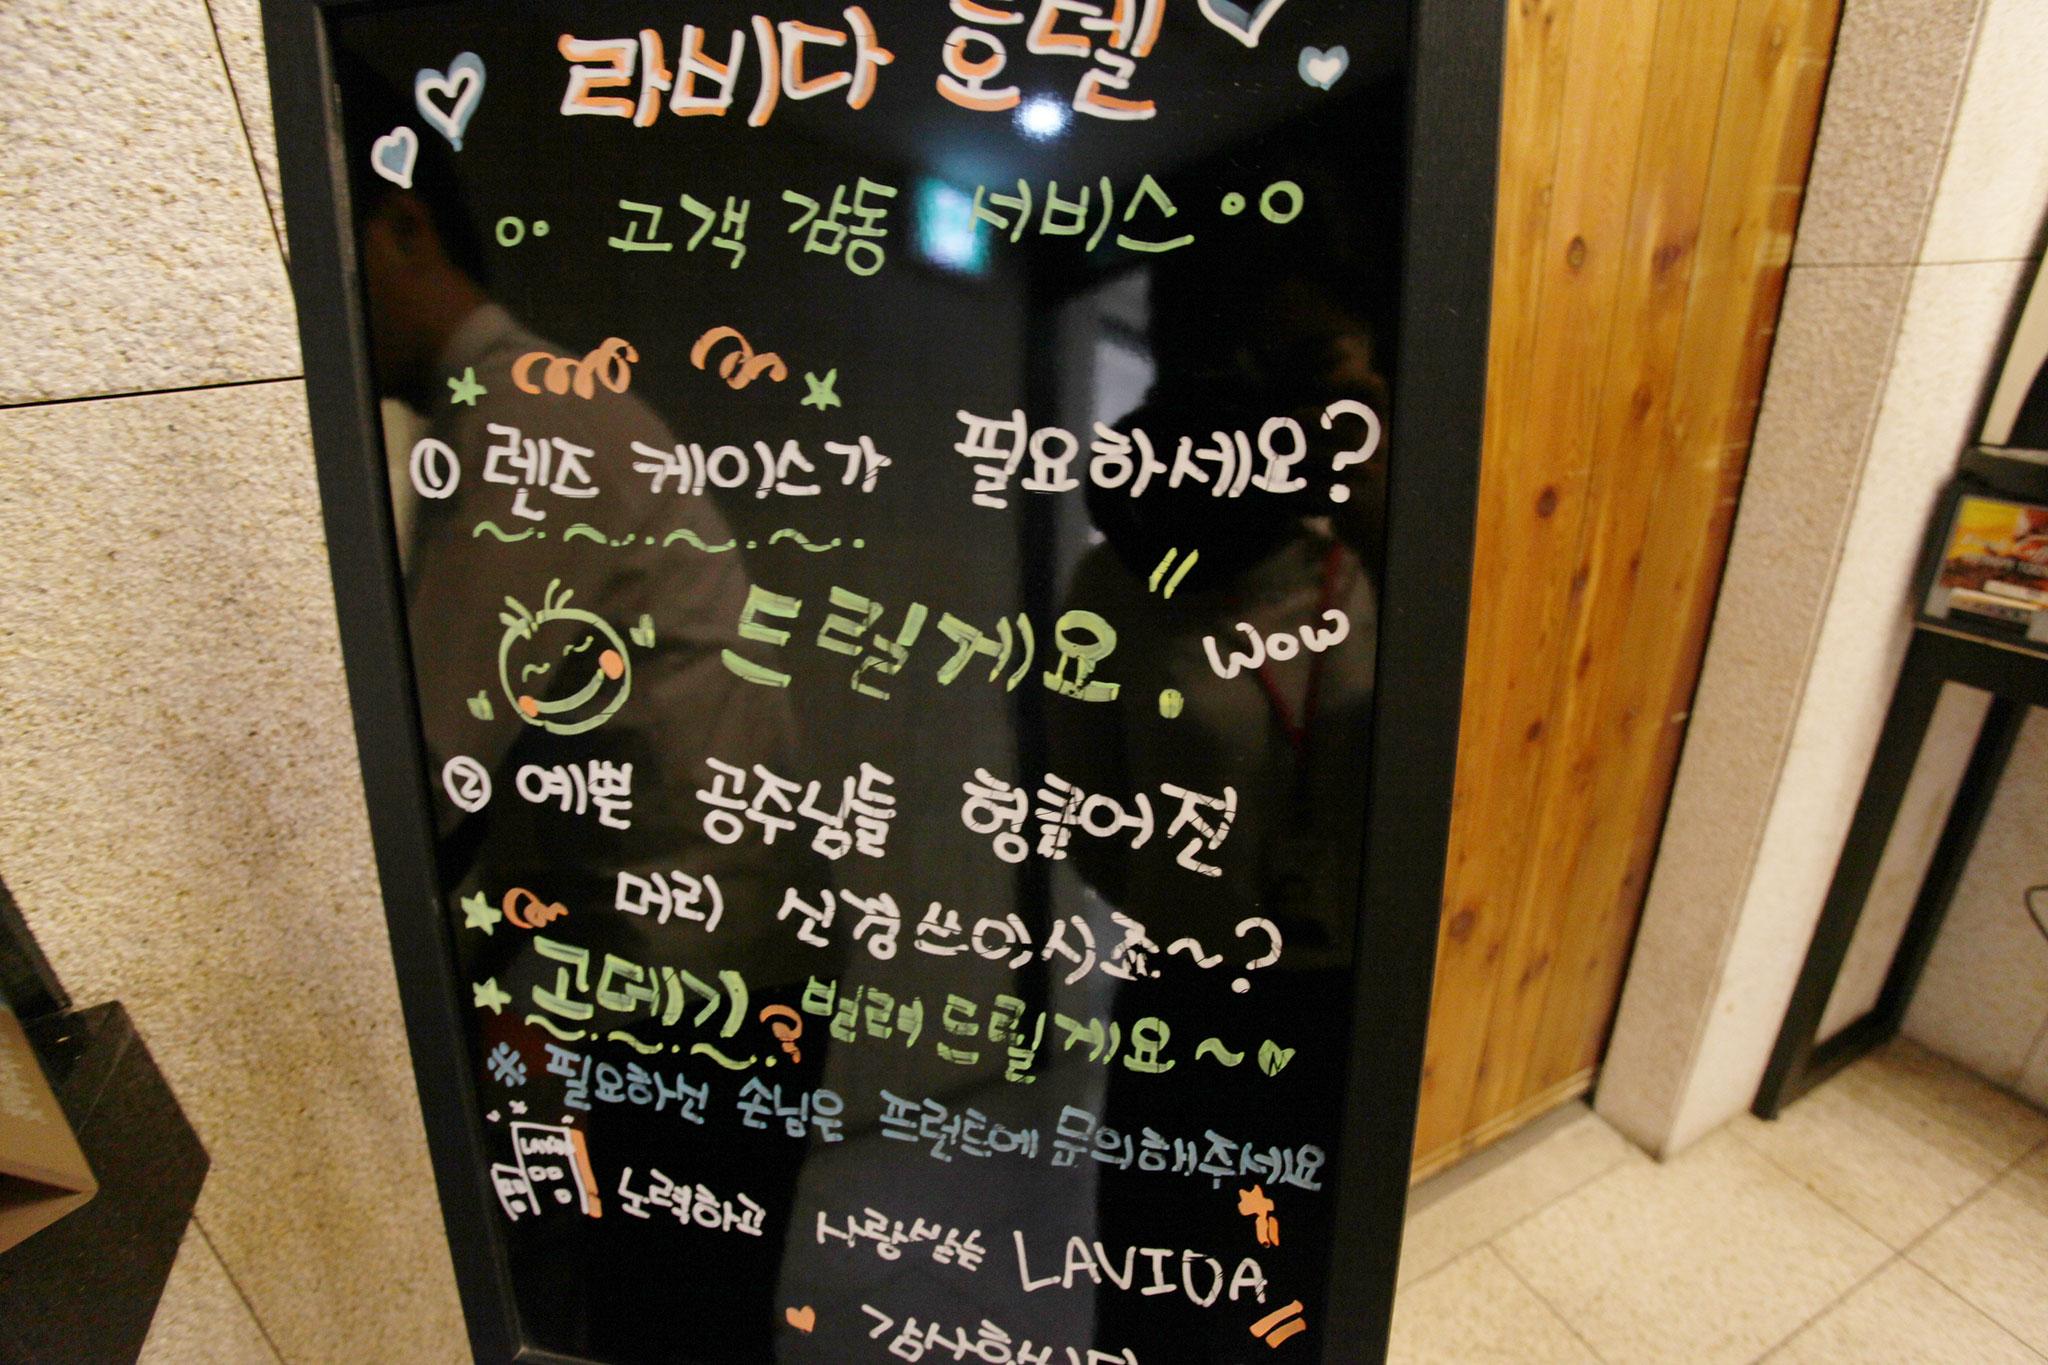 라비다 호텔
고객 감동 서비스
① 렌즈 케이스가 필요하세요?
드릴게요. wow
② 예쁜 공주님들 헝클어진
머리 신경쓰이시죠~?
고데기 빌려드릴게요~
※ 필요하신 손님은 프런트에 문의해주세요
노력하고 사랑받는 LAVIDA
감사합니다